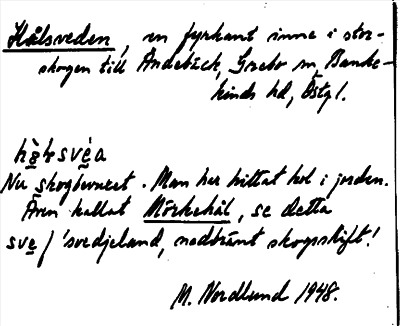 Hålsveden, en fyrkant inne i stor-
skogen till Andebäck, Grebo sn, Banke-
kinds hd, Östgl.
Nu skogbevuxet. Man har hittat hol i jorden.
Även kallat Mörkehål, se detta
sve / 'svedjeland, nedbränt skogsskift'!
M. Nordlund 1948.